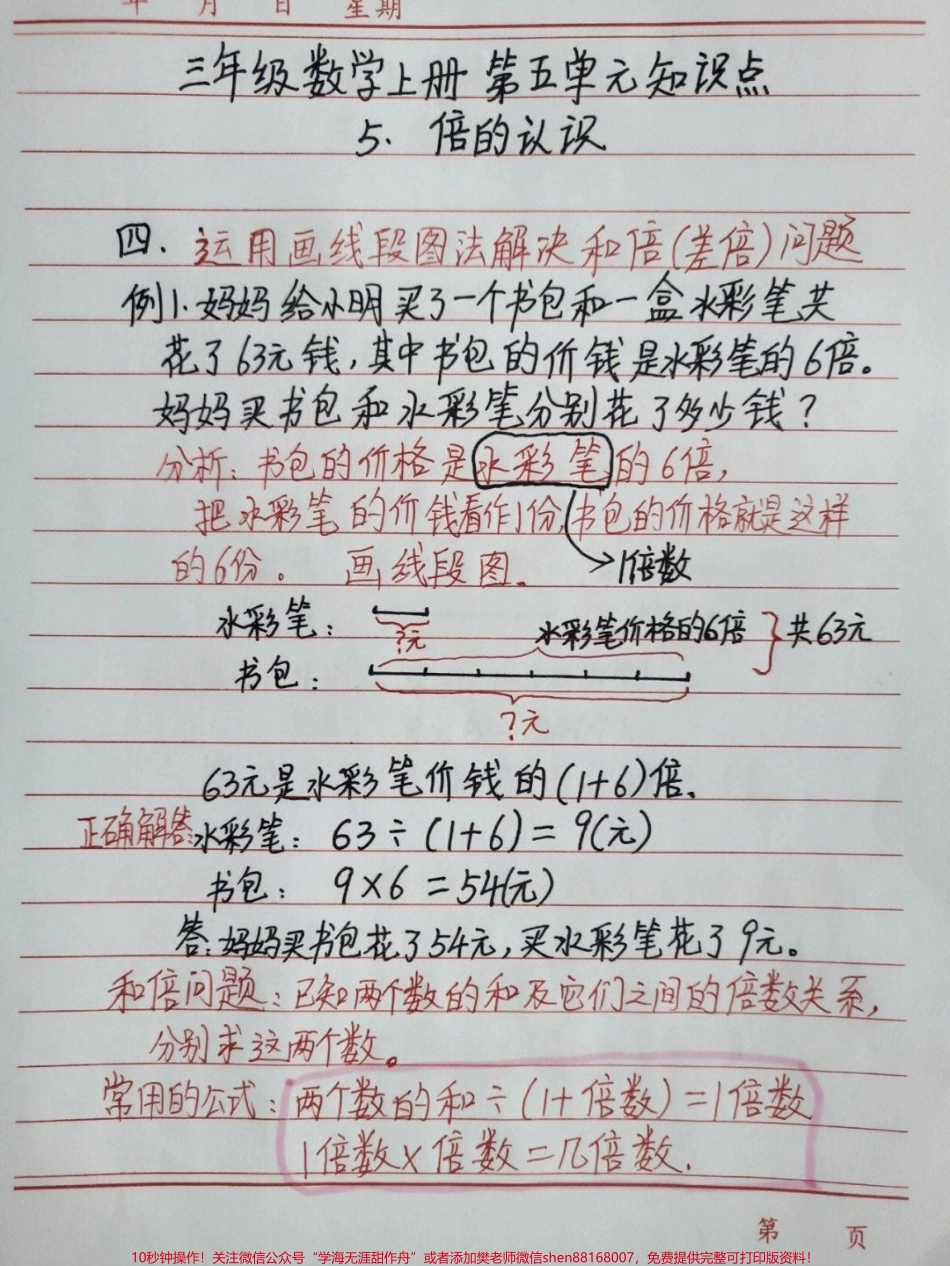 年 月 日 星期
三年级数学上册 第五单元知识点
5. 倍的认识
四. 运用画线段图法解决和倍(差倍)问题
例1.妈妈给小明买了一个书包和一盒水彩笔,共
花了63元钱,其中书包的价钱是水彩笔的6倍。
妈妈买书包和水彩笔分别花了多少钱?
分析:书包的价格是水彩笔的6倍,
把水彩笔的价钱看作1份,书包的价格就是这样
的6份。 画线段图。 1倍数
水彩笔: ?元 水彩笔价格的6倍 共63元
书包:
?元
63元是水彩笔价钱的(1+6)倍.
正确解答:水彩笔: 63÷(1+6)=9(元)
书包: 9×6=54(元)
答:妈妈买书包花了54元,买水彩笔花了9元。
和倍问题:已知两个数的和及它们之间的倍数关系,
分别求这两个数。
常用的公式:两个数的和÷(1+倍数)=1倍数
1倍数×倍数=几倍数.
第 页
10秒钟操作!关注微信公众号“学海无涯甜作舟”或者添加樊老师微信shen88168007,免费提供完整可打印版资料!